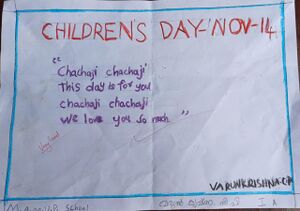 CHILDREN'S DAY-'NOV-14
"Chachaji chachaji'
This day is for you
chachaji chachaji
We love you so mach"
VARUNKRISHNA
School
I A